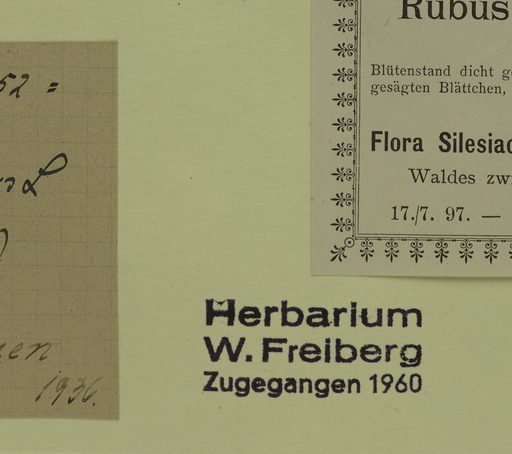 52 =
L
1936.
Rubus
Blütenstand dicht
gesägten Blättchen,
Flora
Waldes
17./7. 97. —
Herbarium
W. Freiberg
Zugegangen 1960